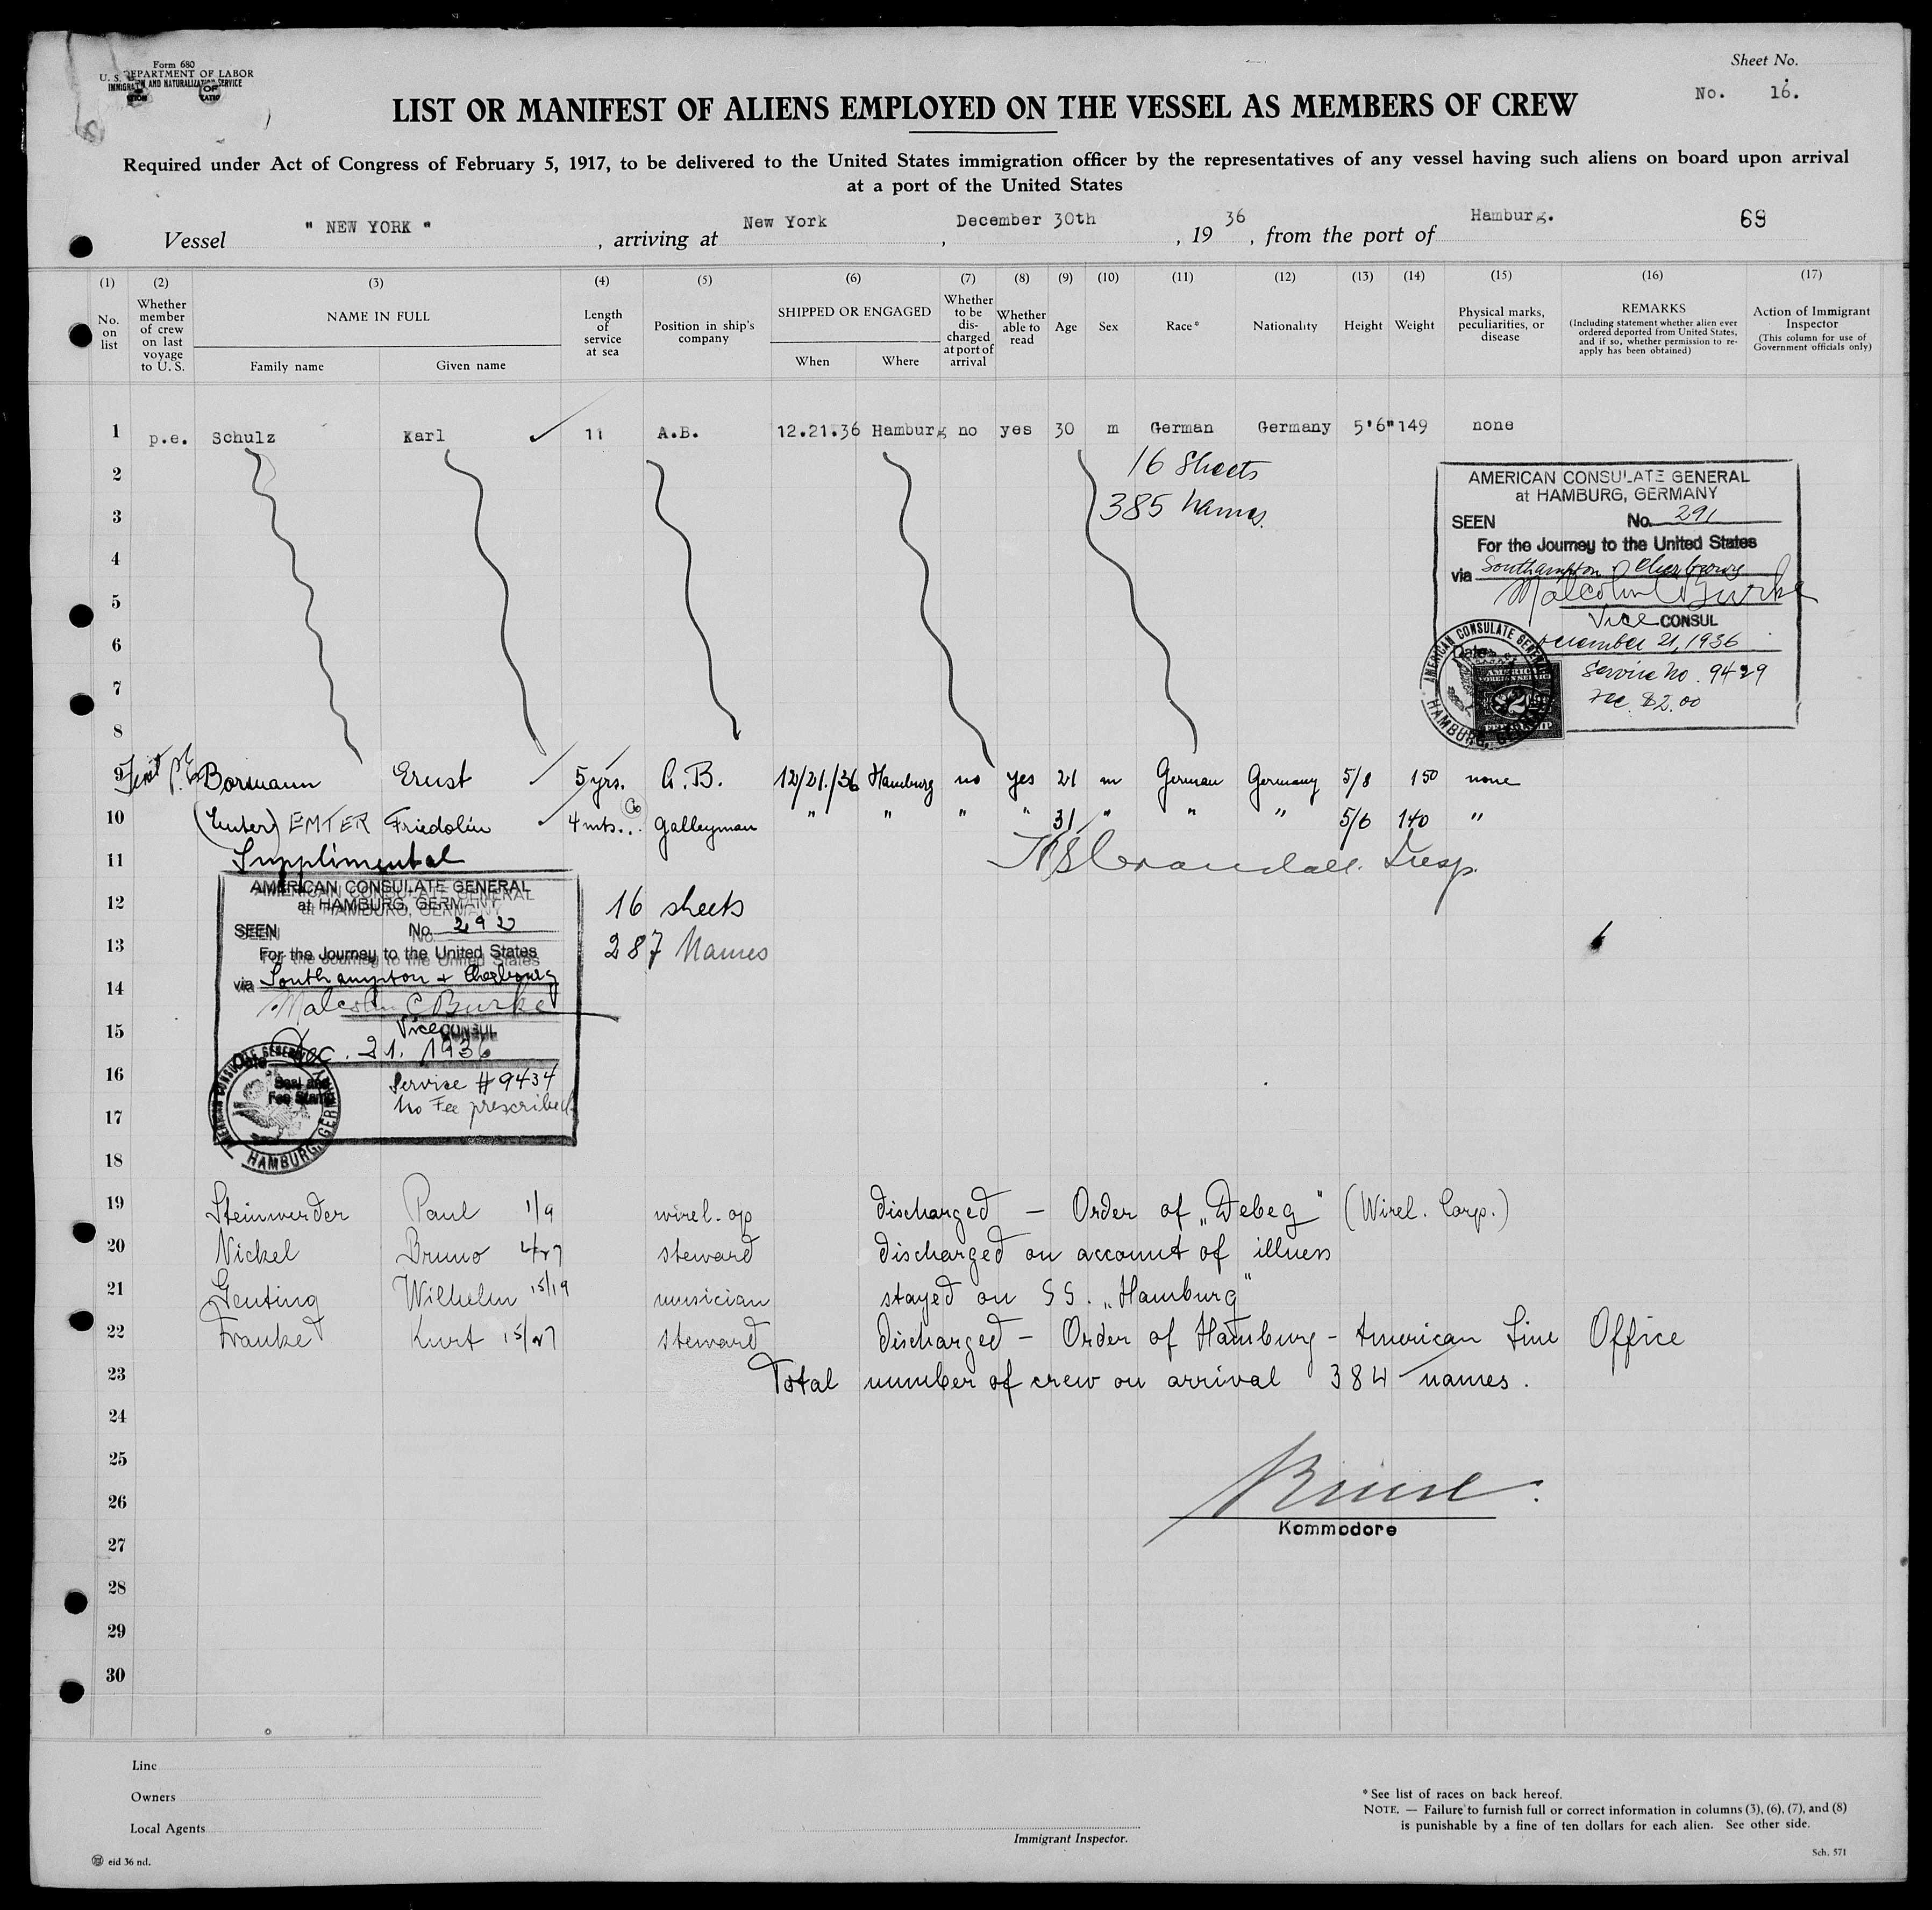 Form 680
U. S. DEPARTMENT OF LABOR
IMMIGRATION AND NATURALIZATION SERVICE
Sheet No.
No. 16.
LIST OR MANIFEST OF ALIENS EMPLOYED ON THE VESSEL AS MEMBERS OF CREW
Required under Act of Congress of February 5, 1917, to be delivered to the United States immigration officer by the representatives of any vessel having such aliens on board upon arrival
at a port of the United States
Vessel " NEW YORK " , arriving at New York , December 30th , 19 36 , from the port of Hamburg. 69
(1) (2) (3) (4) (5) (6) (7) (8) (9) (10) (11) (12) (13) (14) (15) (16) (17)
No. on list
Whether member of crew on last voyage to U. S.
NAME IN FULL
Family name Given name
Length of service at sea
Position in ship's company
SHIPPED OR ENGAGED
When Where
Whether to be discharged at port of arrival
Whether able to read
Age
Sex
Race*
Nationality
Height
Weight
Physical marks, peculiarities, or disease
REMARKS
(Including statement whether alien ever ordered deported from United States, and if so, whether permission to re-apply has been obtained)
Action of Immigrant Inspector
(This column for use of Government officials only)
1 p.e. Schulz Karl 11 A.B. 12.21.36 Hamburg no yes 30 m German Germany 5'6" 149 none
2 16 Sheets
3 385 names.
AMERICAN CONSULATE GENERAL
at HAMBURG, GERMANY
SEEN No. 291
For the Journey to the United States
via Southampton & Cherbourg
Malcolm C Burke
Vice CONSUL
Date December 21, 1936
Service No. 9429
Fee $2.00
AMERICAN CONSULATE GENERAL
HAMBURG, GERMANY
AMERICAN
FOREIGN SERVICE
$2
4
5
6
7
8
9 First Bormann Ernst 5 yrs. A.B. 12/21./36 Hamburg no yes 21 m German Germany 5/8 150 none
10 (Emter) EMTER Friedolin 4 mts. galleyman " " " " 31 " " " 5/6 140 "
11 Supplimental
Crandall. Insp.
AMERICAN CONSULATE GENERAL
at HAMBURG, GERMANY
SEEN No. 292
For the Journey to the United States
via Southampton & Cherbourg
Malcolm C Burke
Vice CONSUL
Date Dec. 21. 1936
Seal and
Fee Stamp
Service # 9434
No Fee prescribed
AMERICAN CONSULATE GENERAL
HAMBURG, GERMANY
12 16 sheets
13 287 Names
14
15
16
17
18
19 Steinwerder Paul 1/9 wirel. op discharged — Order of „Debeg" (Wirel. Corp.)
20 Nickel Bruno 4/27 steward discharged on account of illness
21 Genting Wilhelm 15/19 musician stayed on SS. „Hamburg"
22 Franke Kurt 15/27 steward discharged — Order of Hamburg - American Line Office
23 Total number of crew on arrival 384 names.
24
25
26
Kommodore
27
28
29
30
Line
Owners
Local Agents
Immigrant Inspector.
* See list of races on back hereof.
NOTE. — Failure to furnish full or correct information in columns (3), (6), (7), and (8)
is punishable by a fine of ten dollars for each alien. See other side.
eid 36 nd.
Sch. 571